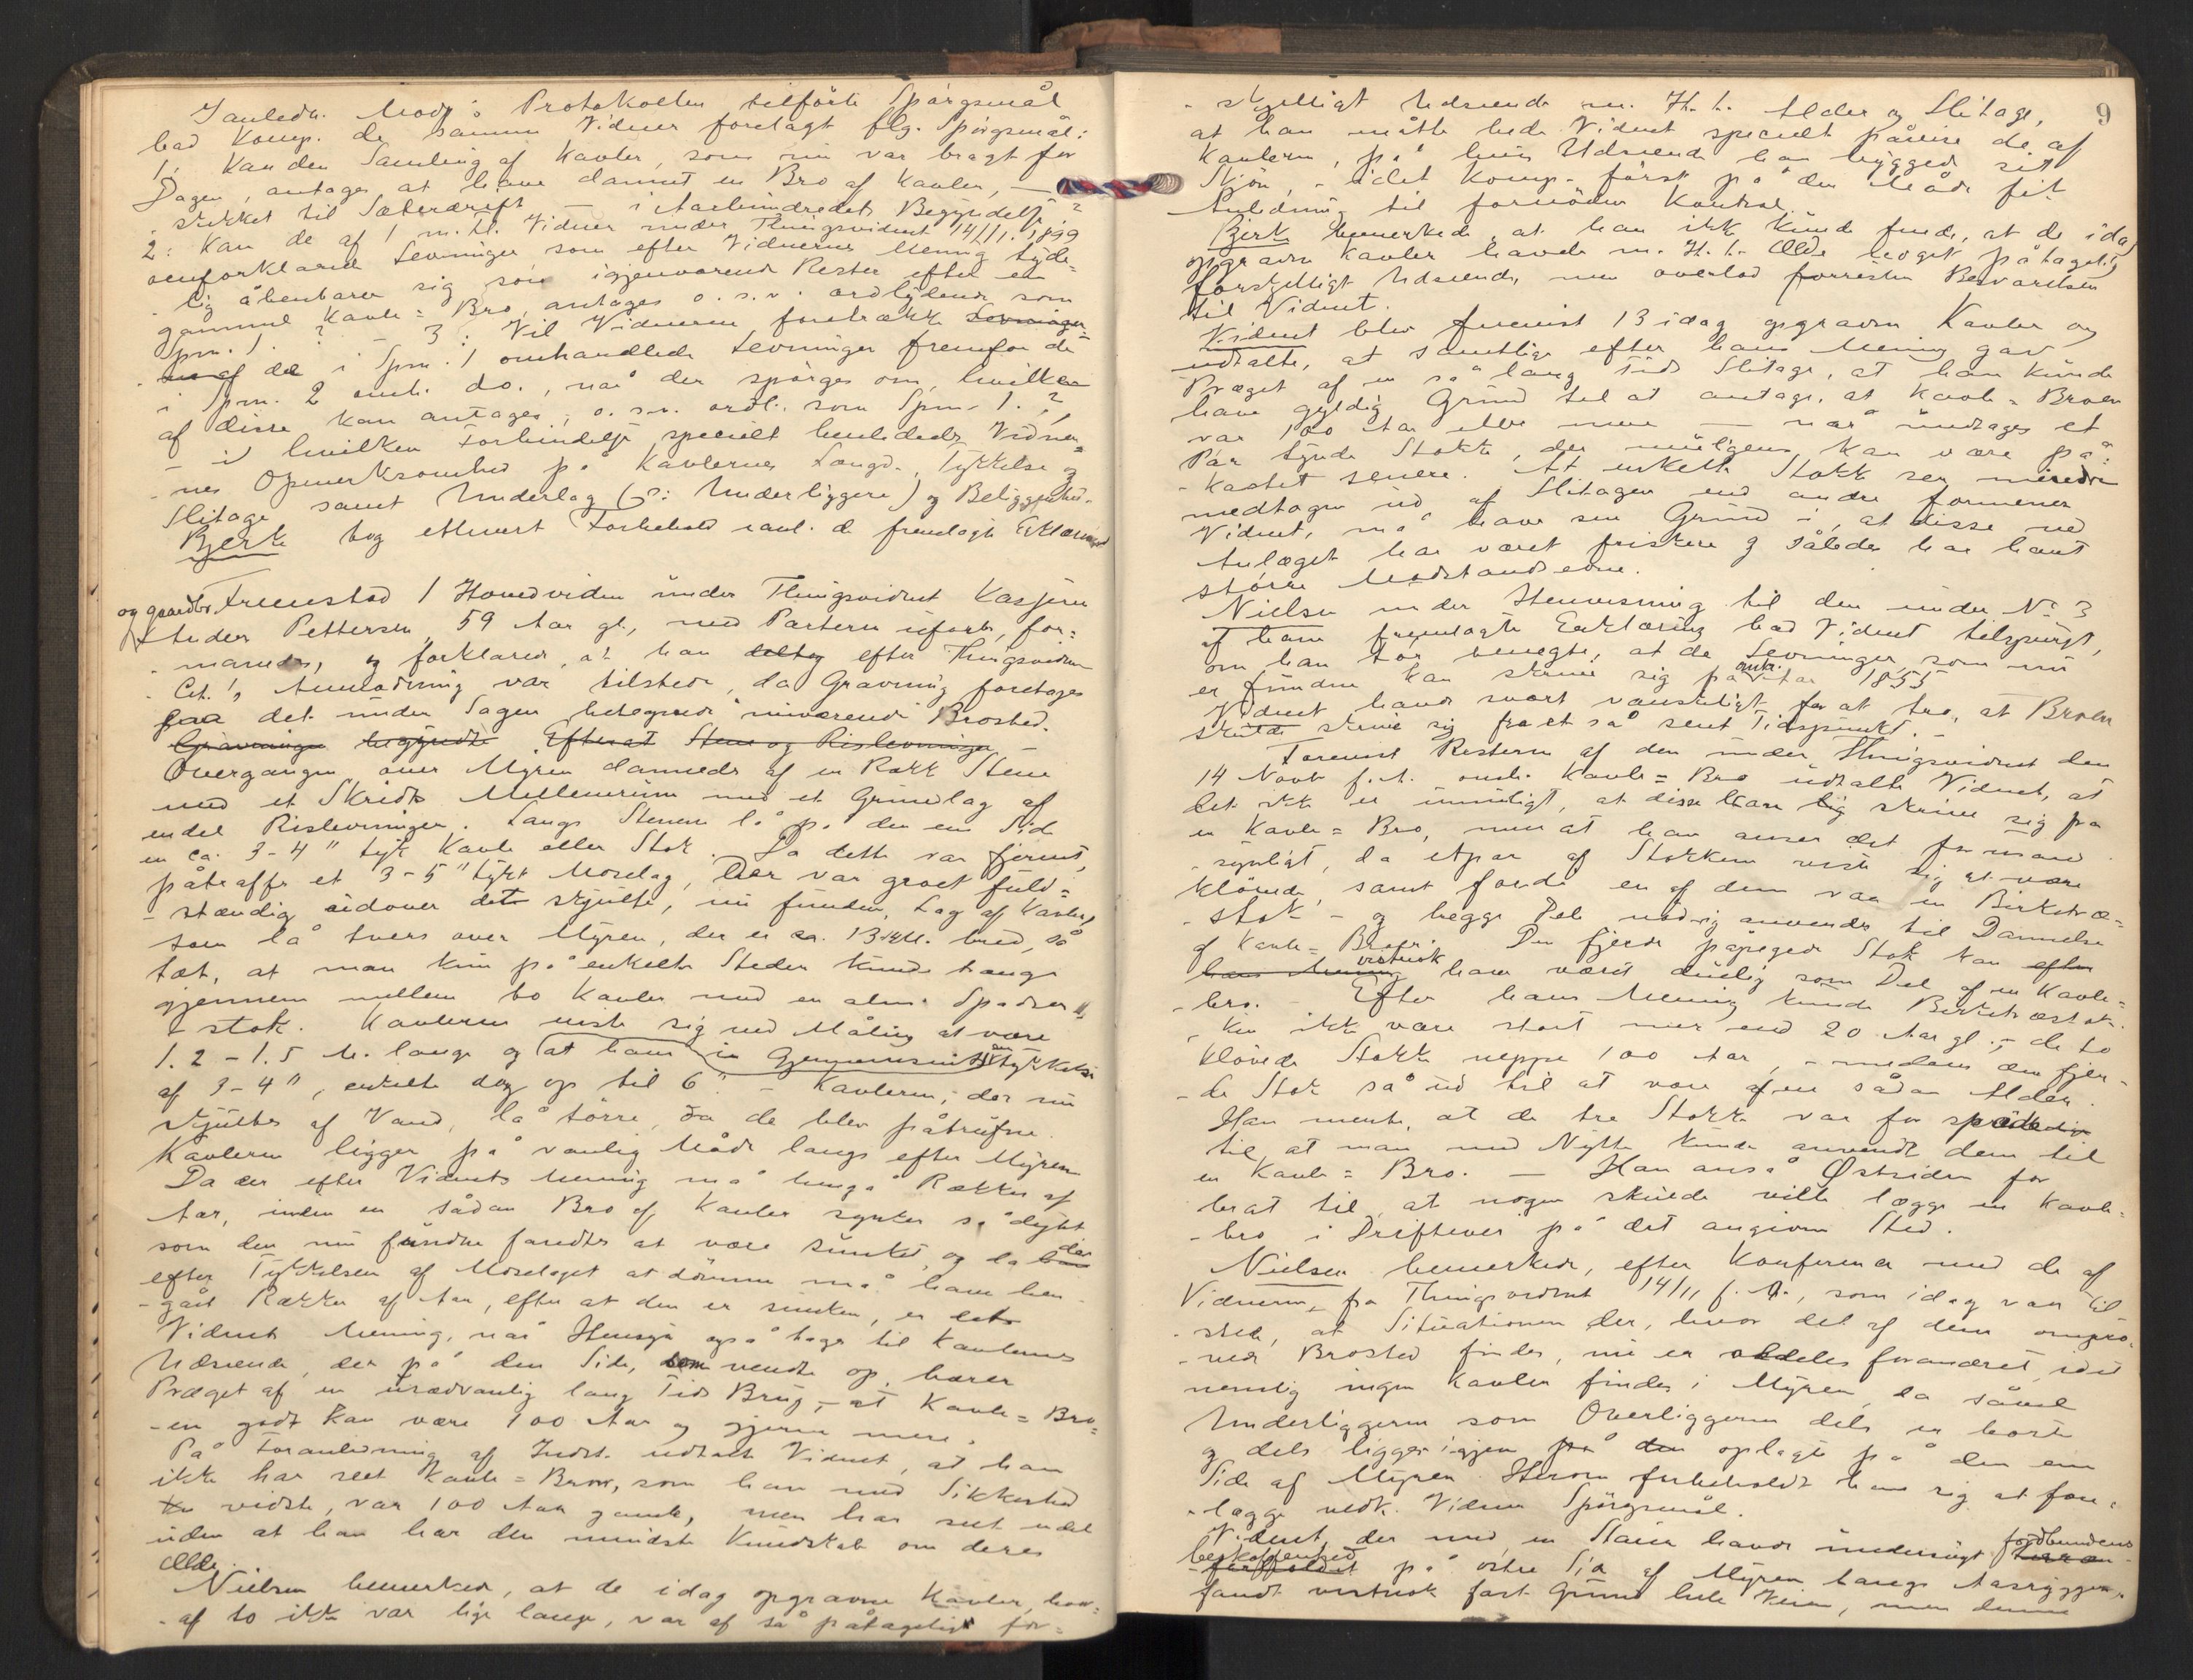 Ianledn. Modp's Protokollen tilførte Spörgsmål
bad Komp. de samme Vidner forelagt flg. Spörgsmål:
1: Kan den Samling af Kavler, som nu var bragt for
Dagen, antages at have dannet en Bro af Kavler, —
stykket til Sæterdrift — i Aarhundredets Begyndelse?
2: Kan de af 1 m. fl. Vidner under Thingsvidnet 14/11. 1899
omforklarede Levninger, som efter Vidnernes Mening tyde-
lig åbenbarer sig som igjenværende Rester efter en
gammel Kavle=Bro, antages o.s.v. ordlydende som
Spm. 1.? — 3: Vil Vidnerne foretrække Levninger
de i Spm. 1 omhandlede Levninger fremfor de
i Spm. 2 omh. do., når der spörges om, hvilken
af disse kan antages, o.s.v. ordl. som Spm. 1.?
- i hvilken Forbindelse specielt henledede Vidner-
nes Opmærksomhed på Kavlernes Længde, Tykkelse og
Slitage samt Underlag (o: Underliggere) og Beliggenhed.
Bjerke tog ethvert Forbehold ianl. de fremlagte Erklæringer
Fremstod 1 Hovedvidne under Thingsvidnet Kasjerer
og gaardbr. Peder Pettersen, 59 Aar gl., med Parterne uforb., for-
manedes, og forklarede, at han deltog efter Thingsvidne
Cit.'s Anmodning var tilstede, da Gravning foretoges
paa det under Sagen betegnede nuværende Brosted.
Gravningen begyndte Efterat Stene og Rislevninger —
Overgangen over Myren dannedes af en Række Stene
med et Skridts Mellemrum med et Grundlag af
endel Rislevninger. Langs Stenene lå på den ene Side
en ca. 3-4" tyk Kavle eller Stok. Da dette var fjernet,
påtraffes et 3-5" tykt Moselag, der var groet fuld-
stændig udover det skjulte, nu fundne, Lag af Kavler,
som lå tvers over Myren, der er ca. 13 M. bred, så
tæt, at man kun på enkelte Steder kunde trænge
gjennem mellem to Kavler med en alm. Spadser-
stok. Kavlerne viste sig ved Måling at være
1.2 - 1.5 M. lange og at have en Gjennemsnitstykkelse
af 3-4", enkelte dog op til 6". — Kavlerne, der nu
skjultes af Vand, lå törre, da de blev påtrufne.
Kavlerne ligger på vanlig Måde langs efter Myren
Da der efter Vidnets Mening må hengå Rækker af
Aar, inden en sådan Bro af Kavler synker så dybt
som den nu fundne fandtes at være sunket, og da der
efter Tykkelsen af Moselaget at dömme må have hen-
gået Rækker af Aar, efter at den er sunken, er det
Vidnets Mening, når Hensyn også tages til Kavlernes
Udseende, der på den Side, som vendte op, bærer
Præget af en usædvanlig lang Tids Brug, — at Kavle=Bro-
en godt kan være 100 Aar og gjerne mere.
På Foranledning af Indst. udtalte Vidnet, at han
ikke har seet Kavle=Broer, som han med Sikkerhed
vidste, var 100 Aar gamle, men har seet endel
uden at han har den mindste Kundskab om deres
Alder.
Nielsen bemerkede, at de idag opgravne Kavler, hvor-
af to ikke var lige lange, var af så påtageligt for-
9
- skjelligt Udseende m. H. t. Alder og Slitage,
at han måtte bede Vidnet specielt påvise de af
Kavlerne, på hvis Udseende han bygged sit
Skjön, — idet Komp. först på den Måde fik
Anledning til fornöden Kontrol.
Bjerke bemerkede, at han ikke kunde finde, at de idag
opgravne Kavler havde m. H. t. Ælde noget påtageligt
forskjelligt Udseende, men overlod forresten Besvarelsen
til Vidnet.
Vidnet blev forevist 13 idag opgravne Kavler og
udtalte, at samtlige efter hans Mening gav
Præget af en så lang Tids Slitage, at han kunde
have gyldig Grund til at antage, at Kavle=Broen
var 100 Aar eller mere — når undtages et
Par tynde Stokke, der muligens kan være på-
kastet senere. At enkelte Stokke ser mindre
medtagne ud af Slitagen end andre formener
Vidnet, må have sin Grund i, at disse ved
Anlæget har været friskere og således har havt
större Modstandsevne.
Nielsen under Henvisning til den under No 3
af ham fremlagte Erklæring bad Vidnet tilspurgt,
om han tör benegte, at de Levninger som nu
er fundne kan skrive sig på omtr. Aar 1855
Vidnet havde svært vanskeligt for at tro, at Broen
skulde skrive sig fra et så sent Tidspunkt. —
Forevist Resterne af den under Thingsvidnet den
14 Novbr f. A. omh. Kavle=Bro udtalte Vidnet, at
det ikke er umuligt, at disse kan skrive sig fra
en Kavle=Bro, men at han anser det for usand-
synligt, da et par af Stokkene viste sig at være
klövede, samt fordi en af dem var en Birketræ-
stok — og begge Dele nødig anvendes til Dannelse
af Kavle=Broer. Den fjerde påpegede Stok kan efter
hans Mening vistnok have været duelig som Del af en Kavle-
bro. — Efter hans Mening kunde Birketræstok-
ken ikke være stort mer end 20 Aar gl. — de to
klövede Stokke neppe 100 Aar, — medens den fjer-
de Stok så ud til at være af en sådan Alder.
Han mente, at de tre Stokke var for
til at man med Nytte kunde anvende dem til
en Kavle=Bro. — Han anså Østsiden for
brat til, at nogen skulde ville lægge en Kavle-
bro i Driftevei på det angivne Sted.
Nielsen bemerkede, efter Konference med de af
Vidnerne fra Thingsvidnet 14/11 f. A., som idag var til-
stede, at Situationen der, hvor det af dem
Brosted findes, nu er aldeles forandret, idet
nemlig ingen Kavler findes i Myren, da såvel
Underliggerne som Overliggerne dels er borte
og dels ligger igjen på den oplagte på den ene
Side af Myren. Herom forbeholdt han sig at fore-
lægge vedk. Vidner Spörgsmål.
Vidnet, der med en Staur havde undersögt Jordbundens
beskaffenhed på östre Side af Myren langs Aasryggen,
fandt vistnok fast Grund hele Veien, men denne